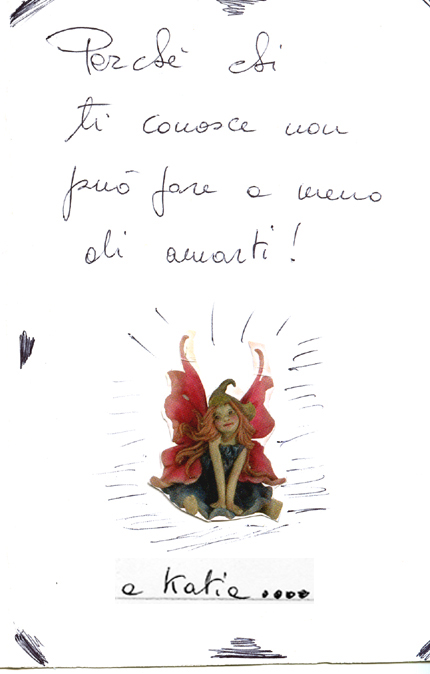 Perchè chi
ti conosce non
può fare a meno
di amarti!
a Katia....